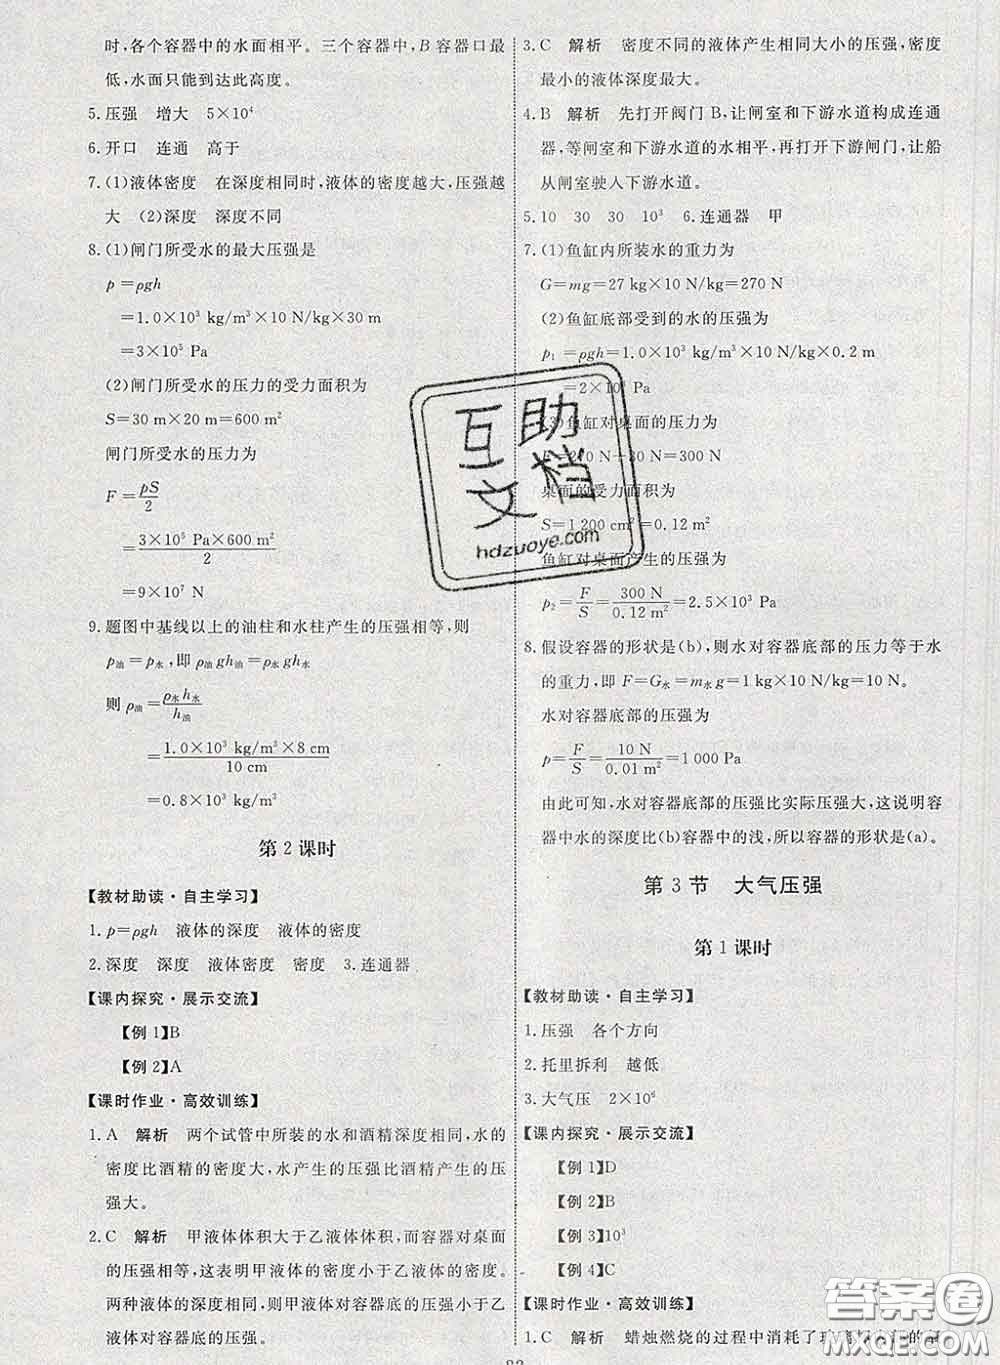 时,各个容器中的水面相平。三个容器中,B容器口最
低,水面只能到达此高度。
5.压强 增大 5×10⁴
6.开口 连通 高于
7.(1)液体密度 在深度相同时,液体的密度越大,压强越
大 (2)深度 深度不同
8.(1)闸门所受水的最大压强是
p=ρgh
=1.0×10³ kg/m³×10 N/kg×30 m
=3×10⁵ Pa
(2)闸门所受水的压力的受力面积为
S=30 m×20 m=600 m²
闸门所受水的压力为
F=pS/2
=3×10⁵ Pa×600 m²/2
=9×10⁷ N
9.题图中基线以上的油柱和水柱产生的压强相等,则
p油=p水,即ρ油gh油=ρ水gh水
则ρ油=ρ水h水/h油
=1.0×10³ kg/m³×8 cm/10 cm
=0.8×10³ kg/m³
第2课时
【教材助读·自主学习】
1.p=ρgh 液体的深度 液体的密度
2.深度 深度 液体密度 密度 3.连通器
【课内探究·展示交流】
【例1】B
【例2】A
【课时作业·高效训练】
1.A 解析 两个试管中所装的水和酒精深度相同,水的
密度比酒精的密度大,水产生的压强比酒精产生的压
强大。
2.C 解析 甲液体体积大于乙液体体积,而容器对桌面
的压强相等,这表明甲液体的密度小于乙液体的密度。
两种液体的深度相同,则甲液体对容器底的压强小于乙
液体对容器底的压强。
3.C 解析 密度不同的液体产生相同大小的压强,密度
最小的液体深度最大。
4.B 解析 先打开阀门B,让闸室和下游水道构成连通
器,等闸室和下游水道的水相平,再打开下游闸门,让船
从闸室驶人下游水道。
5.10 30 30 10³ 6.连通器 甲
7.(1)鱼缸内所装水的重力为
G=mg=27 kg×10 N/kg=270 N
(2)鱼缸底部受到的水的压强为
p₁=ρgh=1.0×10³ kg/m³×10 N/kg×0.2 m
=2×10³ Pa
(3)鱼缸对桌面的压力为
F=270 N+30 N=300 N
桌面的受力面积为
S=1 200 cm²=0.12 m²
鱼缸对桌面产生的压强为
p₂=F/S=300 N/0.12 m²=2.5×10³ Pa
8.假设容器的形状是(b),则水对容器底部的压力等于水
的重力,即F=G水=m水g=1 kg×10 N/kg=10 N。
水对容器底部的压强为
p=F/S=10 N/0.01 m²=1 000 Pa
由此可知,水对容器底部的压强比实际压强大,这说明容
器中水的深度比(b)容器中的浅,所以容器的形状是(a)。
第3节 大气压强
第1课时
【教材助读·自主学习】
1.压强 各个方向
2.托里拆利 越低
3.大气压 2×10⁶
【课内探究·展示交流】
【例1】D
【例2】B
【例3】10³
【例4】C
【课时作业·高效训练】
1.C 解析 蜡烛燃烧的过程中消耗了玻璃
83
互助
文档
hdzuoye.com
答案圈
MXQE.COM